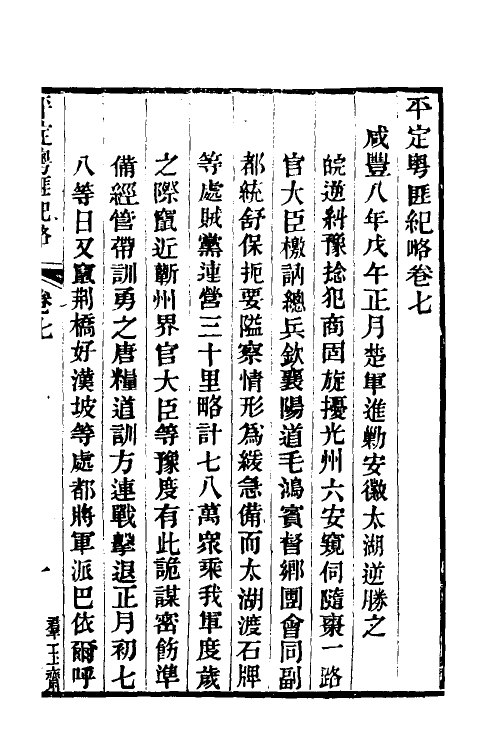 平定粵匪紀略卷七
咸豐八年戊午正月楚軍進勦安徽太湖逆勝之
皖逆糾豫捻犯商固旋擾光州六安窺伺隨棗一路
官大臣檄訥總兵欽襄陽道毛鴻賓督鄉團會同副
都統舒保扼要隘察情形為緩急備而太湖渡石牌
等處賊黨連營三十里略計七八萬眾乘我軍度歲
之際竄近蘄州界官大臣等豫度有此詭謀密飭準
備經管帶訓勇之唐糧道訓方連戰擊退正月初七
八等日又竄荊橋好漢坡等處都將軍派巴依爾呼
平定粵匪紀略
卷七
一
羣玉齋